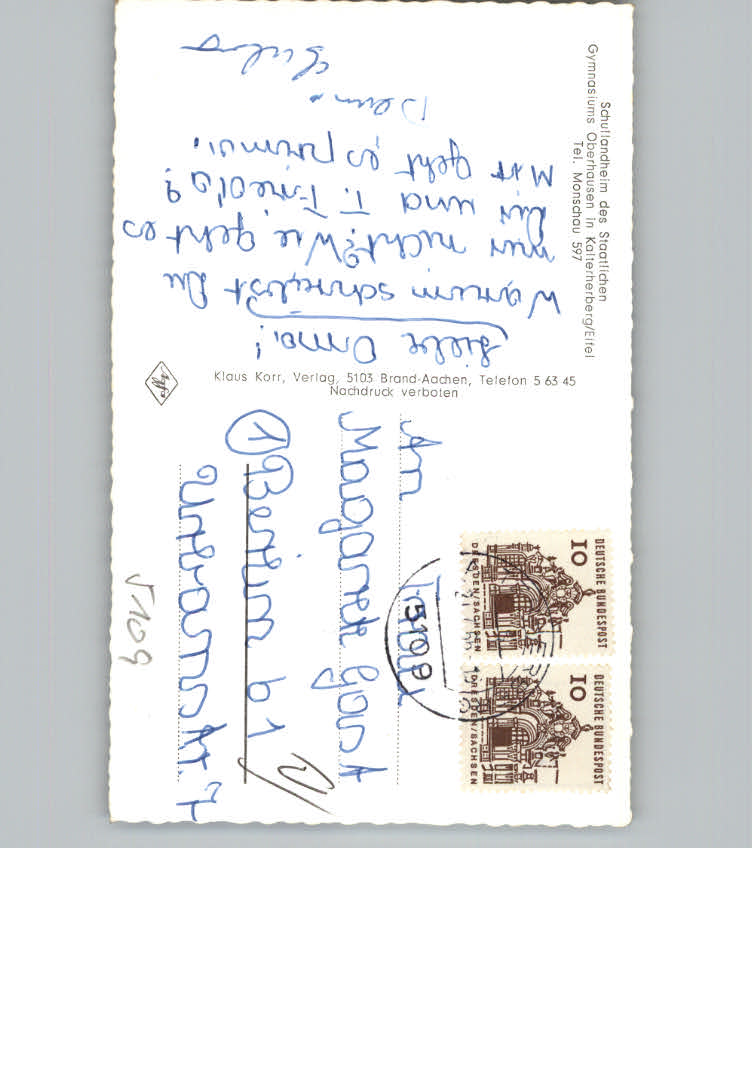 Schullandheim des Staatlichen
Gymnasiums Oberhausen in Kalterherberg/Eifel
Tel. Monschau 597
Liebe Omma!
Warum schreibst Du
mir nicht? Wie geht es
Dir und T. Frieda?
Mir geht es prima.
Dein
Klaus Korr, Verlag, 5103 Brand-Aachen, Telefon 5 63 45
Nachdruck verboten
Agfa
DEUTSCHE BUNDESPOST
10
DRESDEN/SACHSEN
DEUTSCHE BUNDESPOST
10
DRESDEN/SACHSEN
5109
An
Frau
Margarete
1 Berlin 61
5109